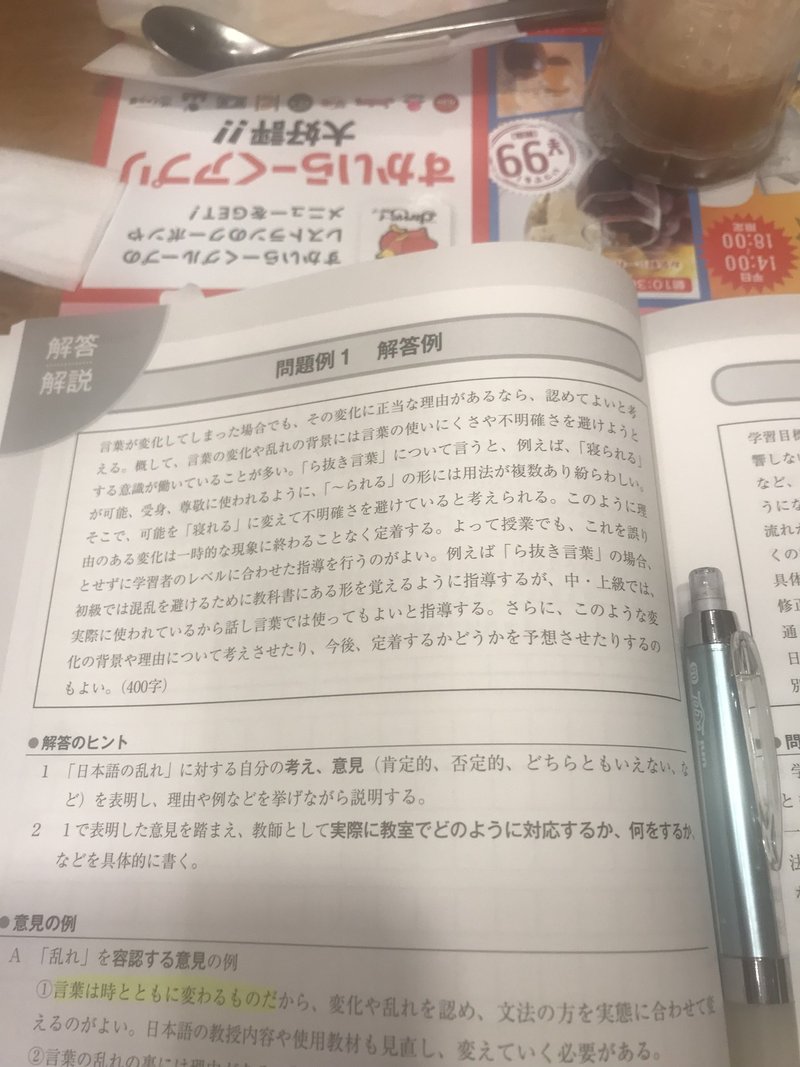 すかいらーくグループの
レストランのクーポンや
メニューをGET!
すかいらーくアプリ
大好評!!
99
朝10:30
平日
14:00
18:00
限定
解答
解説
問題例1 解答例
言葉が変化してしまった場合でも、その変化に正当な理由があるなら、認めてよいと考
える。概して、言葉の変化や乱れの背景には言葉の使いにくさや不明確さを避けようと
する意識が働いていることが多い。「ら抜き言葉」について言うと、例えば、「寝られる」
が可能、受身、尊敬に使われるように、「〜られる」の形には用法が複数あり紛らわしい。
そこで、可能を「寝れる」に変えて不明確さを避けていると考えられる。このように理
由のある変化は一時的な現象に終わることなく定着する。よって授業でも、これを誤り
とせずに学習者のレベルに合わせた指導を行うのがよい。例えば「ら抜き言葉」の場合、
初級では混乱を避けるために教科書にある形を覚えるように指導するが、中・上級では、
実際に使われているから話し言葉では使ってもよいと指導する。さらに、このような変
化の背景や理由について考えさせたり、今後、定着するかどうかを予想させたりするの
もよい。(400字)
●解答のヒント
1 「日本語の乱れ」に対する自分の考え、意見(肯定的、否定的、どちらともいえない、な
ど)を表明し、理由や例などを挙げながら説明する。
2 1で表明した意見を踏まえ、教師として実際に教室でどのように対応するか、何をするか、
などを具体的に書く。
●意見の例
A 「乱れ」を容認する意見の例
①言葉は時とともに変わるものだから、変化や乱れを認め、文法の方を実態に合わせて変
えるのがよい。日本語の教授内容や使用教材も見直し、変えていく必要がある。
②言葉の乱れの裏には理由が
学習目標
響しない
など、
うにな
流れが
くの
具体
修正
通
日
別
●問
学
と
一
法